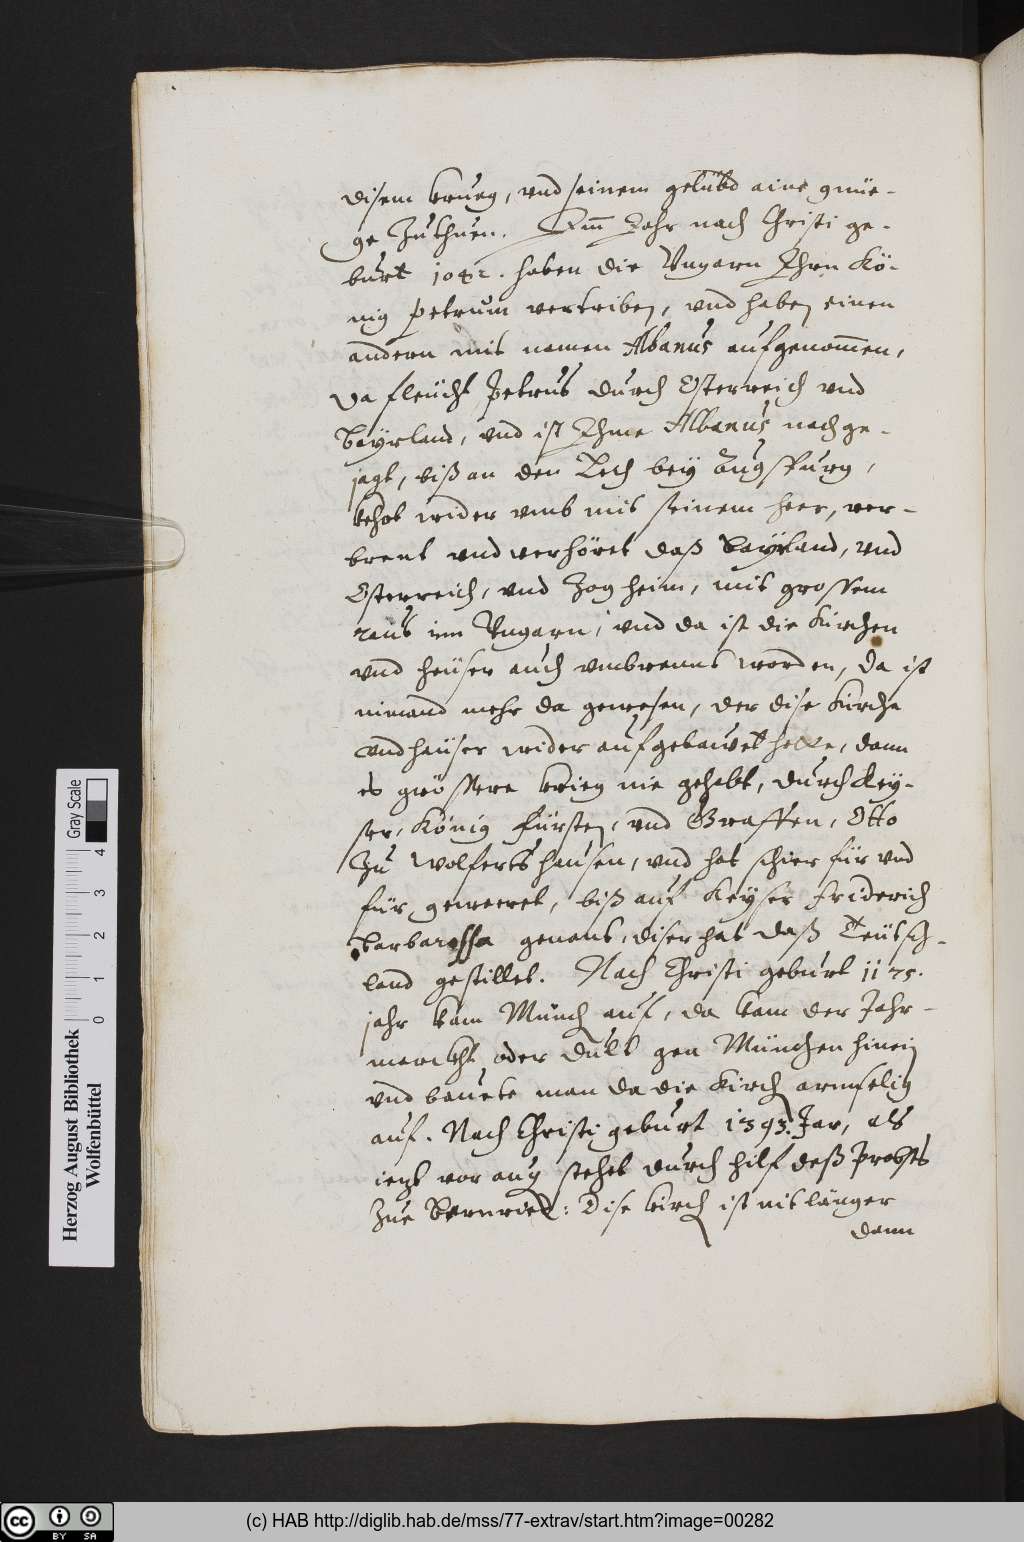 disem krueg, vnd seinem gelübd aine gnüe-
ge Zuthuen. Im Jahr nach Christi ge-
burt 1042. haben die Vngarn Ihrn Kö-
nig Petrum vertriben, vnd haben einen
andern mit namen Albanus aufgenommen,
da fleücht Petrus durch Österreich vnd
Bayrland, vnd ist Ihme Albanus nachge-
jagt, biß an den Lech bey Augspurg,
kehrt wider vmb mit seinem heer, ver-
brent vnd verhöret daß Bayrland, vnd
Österreich, vnd Zog heim, mit grossem
raub inn Vngarn, vnd da ist die Kirchen
vnd heüser auch vmbrennt worden, da ist
nimand mehr da gewesen, der dise Kirche
vnd haüser wider aufgebauwet hette, dann
es grössere krieg nie gehabt, durch Key-
ser, König Fürsten, vnd Graffen, Otto
Zu Wolfertshausen, vnd hat schier für vnd
für geweret, biß auf Keyser Friderich
Barbarossa genant, diser hat daß Teütsch-
land gestillet. Nach Christi geburt 1175.
jahr kam Münch auf, da kam der Jahr-
marckht oder Dult gen München hinein
vnd bauete man da die Kirch armselig
auf. Nach Christi geburt 1393. Jar, als
iezt vor aug stehet durch hilf deß Probsts
Zue Bernried: Dise kirch ist nit länger
dann
Gray Scale
0 1 2 3 4
Herzog August Bibliothek
Wolfenbüttel
cc BY SA
(c) HAB http://diglib.hab.de/mss/77-extrav/start.htm?image=00282